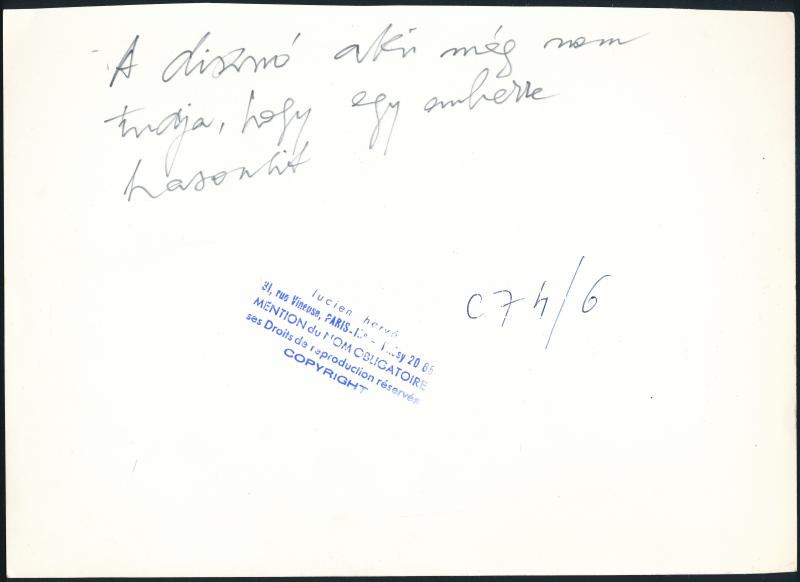 A disznó aki még nem
tudja, hogy egy emberre
hasonlit
C74/6
lucien hervé
31, rue Vineuse, PARIS-
20 85
MENTION du NOM OBLIGATOIRE
ses Droits de reproduction réservés
COPYRIGHT